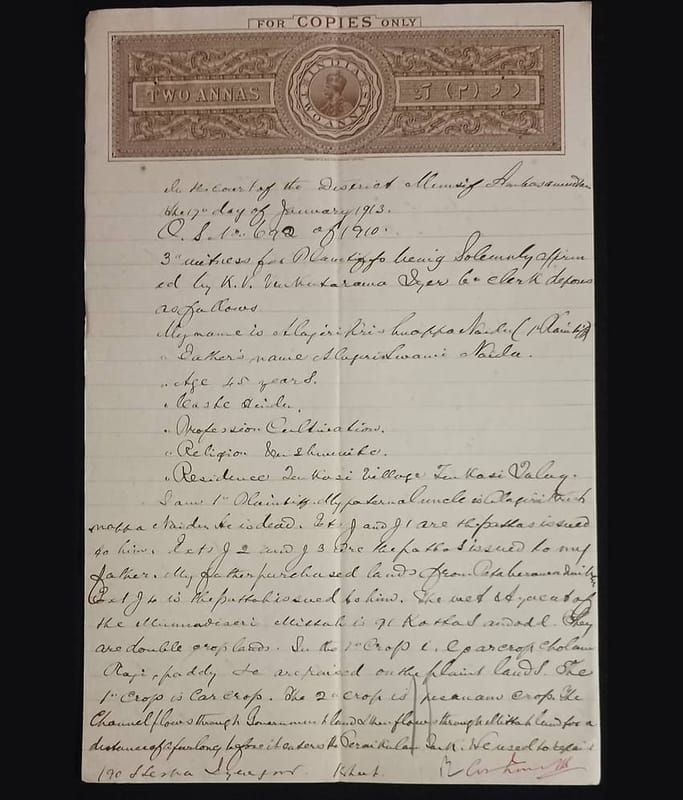 FOR COPIES ONLY
INDIA
TWO ANNAS
TWO ANNAS
In the court of the District Munsif Ambasamudram
the 17th day of January 1913.
O. S. No. 692 of 1910.
3rd witness for Plaintiffs being Solemnly affirm
ed by K. V. Venkatarama Iyer Cn clerk deposes
as follows
My name is Alagiri Krishnappa Naidu (1st Plaintiff)
" Father's name Alagiriswami Naidu.
" Age 45 years.
" Caste Hindu.
" Profession Cultivation.
" Religion Vaishnavite.
" Residence Tenkasi Village Tenkasi Taluq.
I am 1st Plaintiff. My paternal uncle is Alagiri
Naidu. He is dead. Exts J and J1 are the pattas issued
to him. Exts J2 and J3 are the pattas issued to my
father. My father purchased lands from
Ext J4 is the pattah issued to him. The wet ayacut of
the Mittah is 91 Kottas and odd. They
are double crop lands. In the 1st Crop i.e. car crop Cholam
Ragi, paddy &c are raised on the plaint lands. The
1st Crop is Car crop. The 2nd crop is pesanam crop. The
Channel flows through Government land & then flows through Mittah land for a
distance of a furlong before it enters the Tank. We used to repair